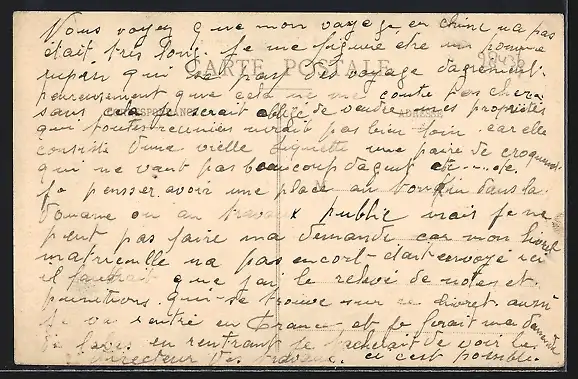 Vous voyez que mon voyage en chine na pas
était très long. Je me figure etre un homme
CARTE POSTALE
qui fait pas des voyage dagrement.
heureusement que cela ne me coute pas cher
CORRESPONDANCE
ADRESSE
sans cela je serait obligé de vendre mes propriétés
qui toutes reunies irait pas bien loin. car elle
consiste dune vielle liquette une paire de croquenot
qui ne vaut pas beaucoup dagent etc.... etc.
Je pensser avoir une place au Tonkin dans la
douane ou au travaux public mais je ne
peut pas faire ma demande car mon livret
matricule na pas encort était envoyé ici
il faudrait que jai le relevé de notes et
punitions qui se trouve sur ce livret. aussi
je va rentré en France et je ferait ma demande
de labas en rentrant je tacherait de voir le
directeur des travaux. ci cest possible.